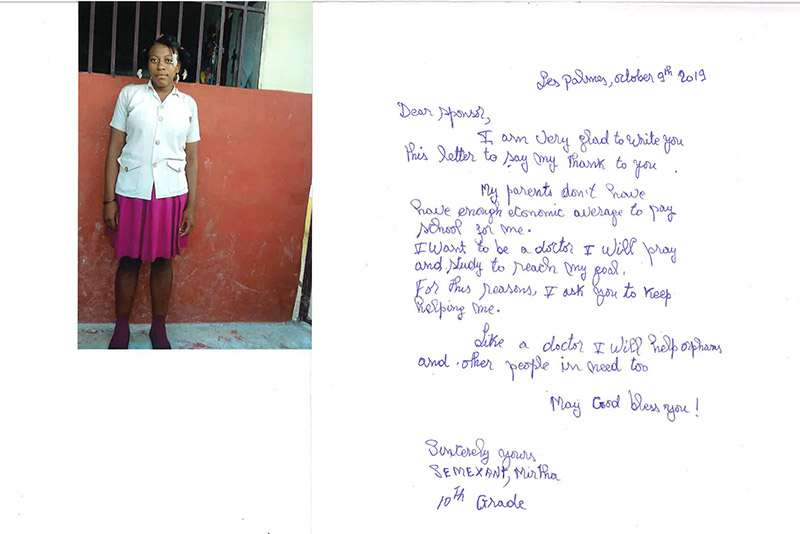 Les palmes, october 9th 2019
Dear sponsor,
I am very glad to write you
this letter to say my thank to you .
My parents don't have
have enough economic average to pay
school for me.
I want to be a doctor I will pray
and study to reach my goal.
For this reasons, I ask you to keep
helping me.
Like a doctor I will help orphans
and other people in need too
May Good bless you!
Sinterely yours
SEMEXANT, Mirtha
10th Grade